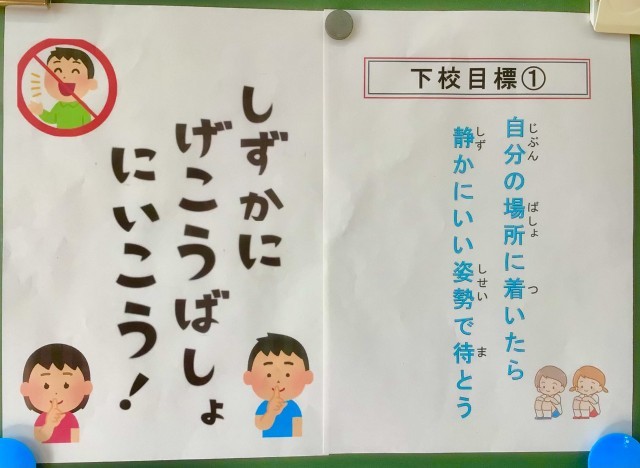 しずかに
げこうばしょ
にいこう！
下校目標①
自分の場所に着いたら
じぶん ばしょ つ
静かにいい姿勢で待とう
しず しせい ま